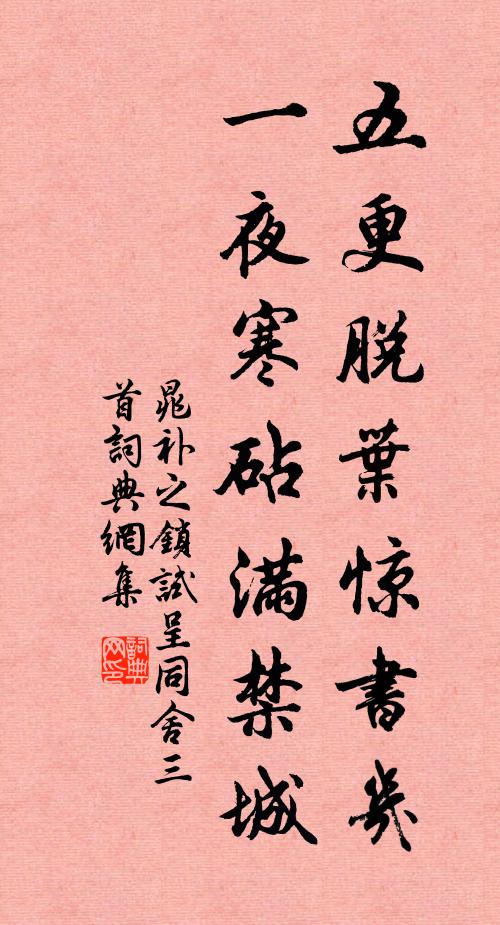 五更脱葉惊書幾
一夜寒砧滿禁城
晁补之鎖試呈同舍三
首詞典網集
詞典网印